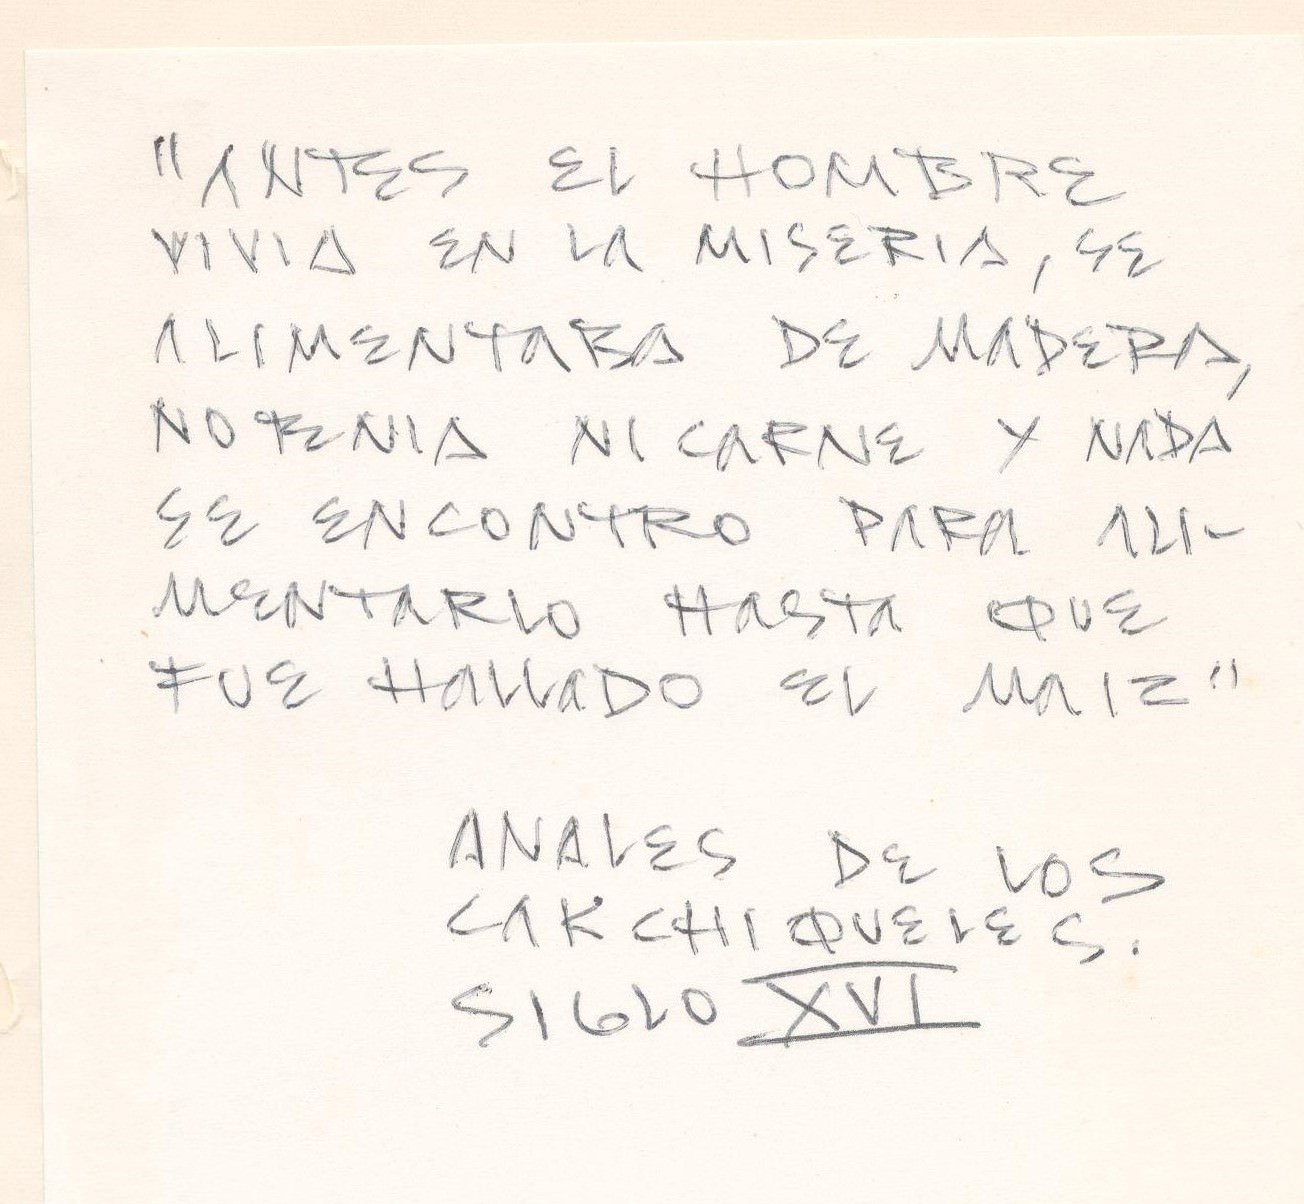 "ANTES EL HOMBRE
VIVIA EN LA MISERIA, SE
ALIMENTABA DE MADERA,
NO TENIA NI CARNE Y NADA
SE ENCONTRO PARA ALI-
MENTARLO HASTA QUE
FUE HALLADO EL MAIZ"
ANALES DE LOS
CAKCHIQUELES.
SIGLO XVI